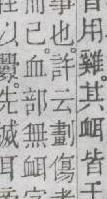 皆用雞。其衈皆于
事也。許云劃傷
而已。血部無衈字
以釁。先滅耳